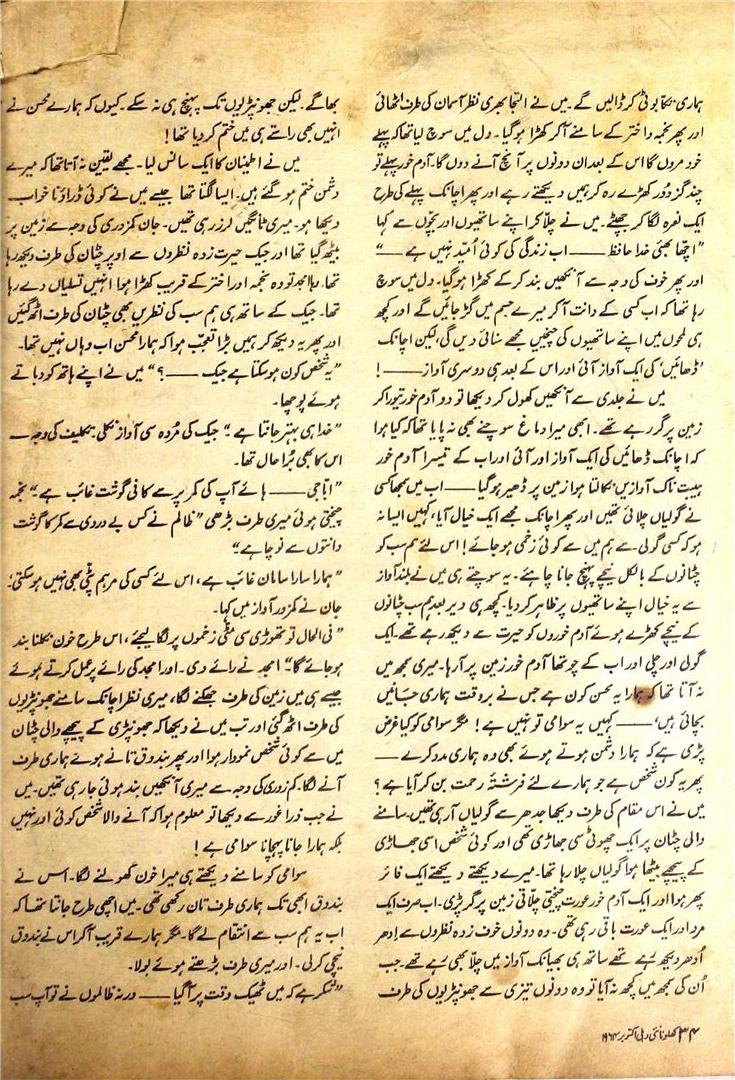 ہماری تکا بوٹی کر ڈالیں گے۔ میں نے التجا بھری نظر آسمان کی طرف اٹھائی
اور پھر نجمہ و اختر کے سامنے آکر کھڑا ہوگیا۔ دل میں سوچ لیا تھا کہ پہلے
خود مروں گا اس کے بعد ان دونوں پر آنچ آنے دوں گا۔ آدم خور پہلے تو
چند گز دُور کھڑے رہ کر ہمیں دیکھتے رہے اور پھر اچانک پہلے کی طرح
ایک نعرہ لگا کر جھپٹے۔ میں نے چلّا کر اپنے ساتھیوں اور بچّوں سے کہا
”اچھا بھئی خدا حافظ ——— اب زندگی کی کوئی اُمید نہیں ہے —“
اور پھر خوف کی وجہ سے آنکھیں بند کر کے کھڑا ہوگیا۔ دل میں سوچ
رہا تھا کہ اب کسی کے دانت آکر میرے جسم میں گڑ جائیں گے اور کچھ
ہی لمحوں میں اپنے ساتھیوں کی چیخیں مجھے سنائی دیں گی، لیکن اچانک
’ڈھائیں‘ کی ایک آواز آئی اور اس کے بعد ہی دوسری آواز ——— !
میں نے جلدی سے آنکھیں کھول کر دیکھا تو دو آدم خور تیورا کر
زمین پر گر رہے تھے۔ ابھی میرا دماغ سوچنے بھی نہ پایا تھا کہ کیا ہوا
کہ اچانک ڈھائیں کی ایک آواز اور آئی اور اب کے تیسرا آدم خور
ہیبت ناک آوازیں نکالتا ہوا زمین پر ڈھیر ہوگیا ——— اب میں سمجھا کسی
نے گولیاں چلائی تھیں اور پھر اچانک مجھے ایک خیال آیا، کہیں ایسا نہ
ہو کہ کسی گولی سے ہم میں سے کوئی زخمی ہو جائے! اس لئے ہم سب کو
چٹانوں کے بالکل نیچے پہنچ جانا چاہئے۔ یہ سوچتے ہی میں نے بلند آواز
سے یہ خیال اپنے ساتھیوں پر ظاہر کر دیا۔ کچھ ہی دیر بعد ہم سب چٹانوں
کے نیچے کھڑے ہوئے آدم خوروں کو حیرت سے دیکھ رہے تھے۔ ایک
گولی اور چلی اور اب کے چوتھا آدم خور زمین پر آرہا۔ میری سمجھ میں
نہ آتا تھا کہ ہمارا یہ محسن کون ہے جس نے بروقت ہماری جانیں
بچائی ہیں‘ ——— کہیں یہ سوامی تو نہیں ہے! مگر سوامی کو کیا غرض
پڑی ہے کہ ہمارا دشمن ہوتے ہوئے بھی وہ ہماری مدد کرے ——
پھر یہ کون شخص ہے جو ہمارے لئے فرشتۂ رحمت بن کر آیا ہے؟
میں نے اس مقام کی طرف دیکھا جدھر سے گولیاں آرہی تھیں۔ سامنے
والی چٹان پر ایک چھوٹی سی جھاڑی تھی اور کوئی شخص اسی جھاڑی
کے پیچھے بیٹھا ہوا گولیاں چلا رہا تھا۔ میرے دیکھتے دیکھتے ایک فائر
پھر ہوا اور ایک آدم خور عورت چیختی چلّاتی زمین پر گر پڑی۔ اب صرف ایک
مرد اور ایک عورت باقی رہی تھی۔ وہ دونوں خوف زدہ نظروں سے اِدھر
اُدھر دیکھ رہے تھے ساتھ ہی بھیانک آواز میں چلّا بھی رہے تھے۔ جب
اُن کی سمجھ میں کچھ نہ آیا تو وہ دونوں تیزی سے جھونپڑیوں کی طرف
بھاگے۔ لیکن جھونپڑیوں تک پہنچ ہی نہ سکے۔ کیوں کہ ہمارے محسن نے
انہیں بھی راستے ہی میں ختم کر دیا تھا!
میں نے اطمینان کا ایک سانس لیا۔ مجھے یقین نہ آتا تھا کہ میرے
دشمن ختم ہو گئے ہیں۔ ایسا لگتا تھا جیسے میں نے کوئی ڈراؤنا خواب
دیکھا ہو۔ میری ٹانگیں لرز رہی تھیں۔ جان کمزوری کی وجہ سے زمین پر
بیٹھ گیا تھا اور جیک حیرت زدہ نظروں سے اوپر چٹان کی طرف دیکھ رہا
تھا۔ رہا امجد تو وہ نجمہ اور اختر کے قریب کھڑا ہوا انہیں تسلیاں دے رہا
تھا۔ جیک کے ساتھ ہی ہم سب کی نظریں بھی چٹان کی طرف اٹھ گئیں
اور پھر یہ دیکھ کر ہمیں بڑا تعجب ہوا کہ ہمارا محسن اب وہاں نہیں تھا۔
”یہ شخص کون ہو سکتا ہے جیک ——؟“ میں نے اپنے ہاتھ کو دباتے
ہوئے پوچھا۔
”خدا ہی بہتر جانتا ہے۔“ جیک کی مُردہ سی آواز نکلی۔ تکلیف کی وجہ سے
اس کا بھی بُرا حال تھا۔
”ابّا جی ——— ہائے آپ کی کمر پر سے کافی گوشت غائب ہے۔“ نجمہ
چیختی ہوئی میری طرف بڑھی ”ظالم نے کس بے دردی سے کمر کا گوشت
دانتوں سے نوچا ہے“
”ہمارا سارا سامان غائب ہے، اس لئے کسی کی مرہم پٹّی بھی نہیں ہوسکتی“
جان نے کمزور آواز میں کہا۔
”فی الحال تو تھوڑی سی مٹّی زخموں پر لگا لیجئے، اس طرح خون نکلنا بند
ہو جائے گا“ امجد نے رائے دی۔ اور امجد کی رائے پر عمل کرتے ہوئے
جیسے ہی میں زمین کی طرف جھکنے لگا، میری نظر اچانک سامنے جھونپڑیوں
کی طرف اٹھ گئی اور تب میں نے دیکھا کہ جھونپڑی کے پیچھے والی چٹان
میں سے کوئی شخص نمودار ہوا اور پھر بندوق تانے ہوئے ہماری طرف
آنے لگا۔ کم زوری کی وجہ سے میری آنکھیں بند ہوئی جارہی تھیں۔ میں
نے جب ذرا غور سے دیکھا تو معلوم ہوا کہ آنے والا شخص کوئی اور نہیں
بلکہ ہمارا جانا پہچانا سوامی ہے!
سوامی کو سامنے دیکھتے ہی میرا خون کھولنے لگا۔ اس نے
بندوق ابھی تک ہماری طرف تان رکھی تھی۔ میں اچھی طرح جانتا تھا کہ
اب یہ ہم سب سے انتقام لے گا۔ مگر ہمارے قریب آکر اس نے بندوق
نیچی کر لی۔ اور میری طرف بڑھتے ہوئے بولا۔
”شکر ہے کہ میں ٹھیک وقت پر آگیا —— ورنہ ظالموں نے تو آپ سب
۳۴ کھلونا نئی دہلی اکتوبر ۱۹۶۴ء